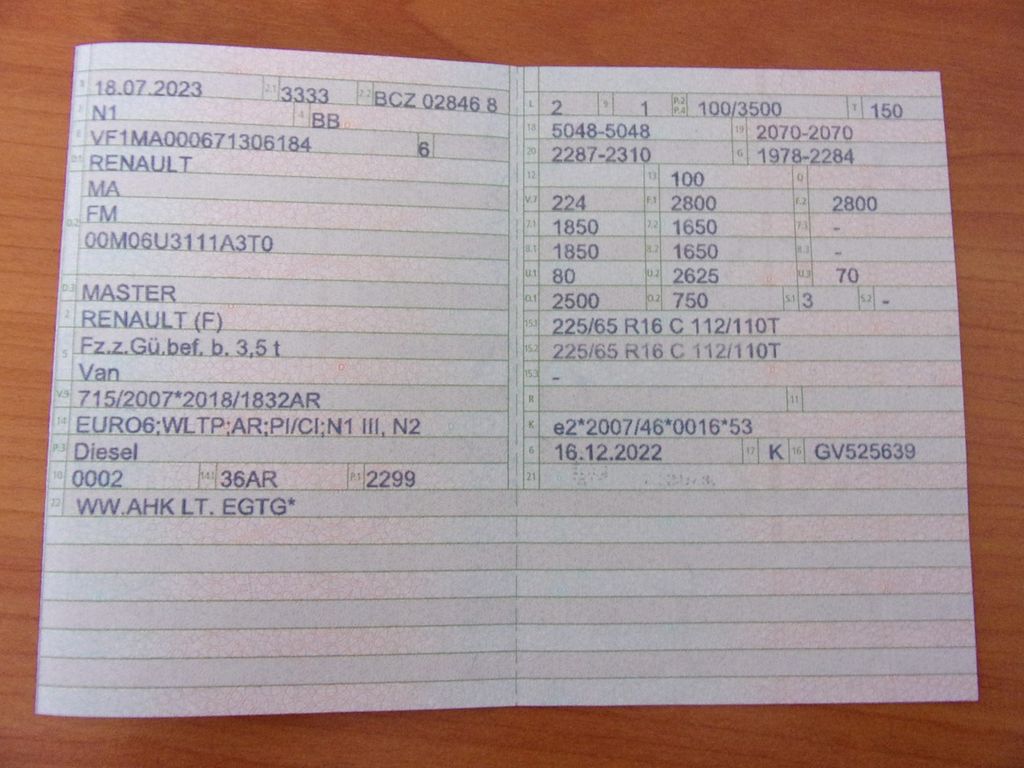 B 18.07.2023 2.1 3333 2.2 BCZ 02846 8
J N1 4 BB
E VF1MA000671306184 6
D.1 RENAULT
MA
D.2 FM
00M06U3111A3T0
D.3 MASTER
2 RENAULT (F)
5 Fz.z.Gü.bef. b. 3,5 t
Van
V.9 715/2007*2018/1832AR
14 EURO6;WLTP;AR;PI/CI;N1 III, N2
P.3 Diesel
10 0002 14.1 36AR P.1 2299
22 WW.AHK LT. EGTG*
L 2 9 1 P.2 P.4 100/3500 T 150
18 5048-5048 19 2070-2070
20 2287-2310 G 1978-2284
12 13 100 Q
V.7 224 F.1 2800 F.2 2800
7.1 1850 7.2 1650 7.3 -
8.1 1850 8.2 1650 8.3 -
U.1 80 U.2 2625 U.3 70
O.1 2500 O.2 750 S.1 3 S.2 -
15.1 225/65 R16 C 112/110T
15.2 225/65 R16 C 112/110T
15.3 -
R 11
K e2*2007/46*0016*53
6 16.12.2022 17 K 16 GV525639
21